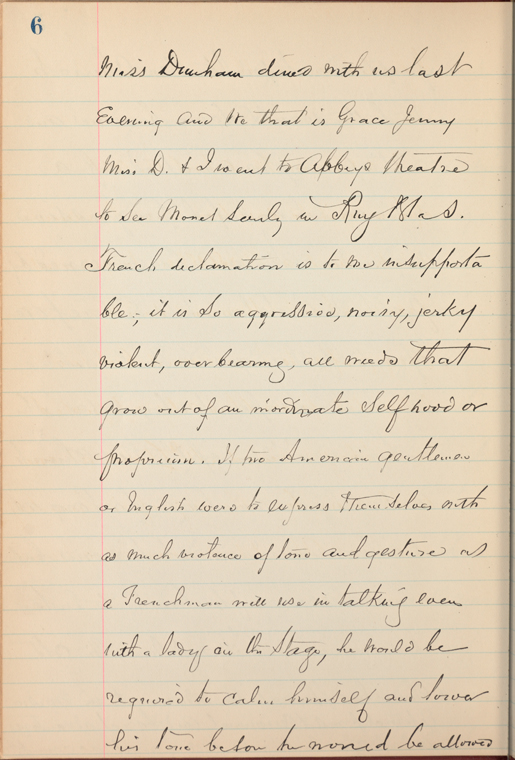 6
Miss Dunham dined with us last
Evening and we that is Grace Jenny
Miss D. & I went to Abbeys theatre
to see Monet Sully in Ruy Blas.
French declamation is to me insupporta
ble; it is so aggressive, noisy, jerky
violent, overbearing, all weeds that
grow out of an inordinate selfhood or
proprium. If two American gentlemen
or English were to express themselves with
as much violence of tone and gesture as
a Frenchman will use in talking even
with a lady on the stage, he would be
required to calm himself and lower
his tone before he would be allowed